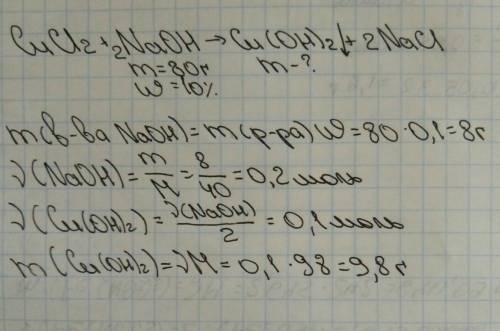 CuCl2 + 2NaOH → Cu(OH)2↓ + 2NaCl
m=80г m-?
w=10%
m(в-ва NaOH)=m(р-ра)·w=80·0,1=8г
ν(NaOH)=m/M=8/40=0,2моль
ν(Cu(OH)2)=ν(NaOH)/2=0,1моль
m(Cu(OH)2)=νM=0,1·98=9,8г